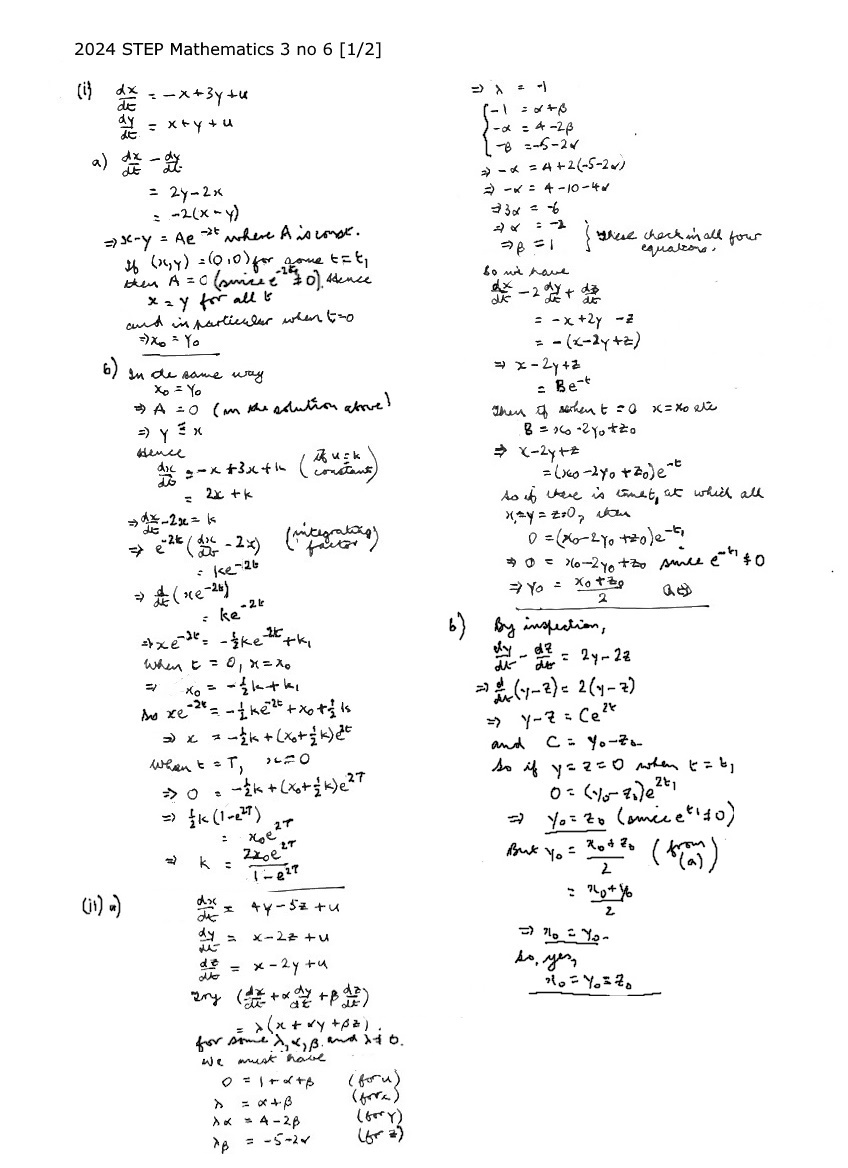 2024 STEP Mathematics 3 no 6 [1/2]
(i) dx/dt = -x+3y+u
dy/dt = x+y+u
a) dx/dt - dy/dt
= 2y-2x
= -2(x-y)
⇒ x-y = Ae^-2t where A is const.
If (x,y) = (0,0) for some t=t₁
then A = 0 (since e^-2t₁ ≠ 0). Hence
x = y for all t
and in particular when t=0
⇒ x₀ = y₀
b) In the same way
x₀ = y₀
⇒ A = 0 (in the solution above)
⇒ y ≡ x
Hence
dx/dt = -x+3x+k (if u=k constant)
= 2x+k
⇒ dx/dt - 2x = k
⇒ e^-2t (dx/dt - 2x) (integrating factor)
= ke^-2t
⇒ d/dt (xe^-2t)
= ke^-2t
⇒ xe^-2t = -½ke^-2t + k₁
When t = 0, x = x₀
⇒ x₀ = -½k + k₁
So xe^-2t = -½ke^-2t + x₀ + ½k
⇒ x = -½k + (x₀+½k)e^2t
When t = T, x = 0
⇒ 0 = -½k + (x₀+½k)e^2T
⇒ ½k(1-e^2T)
= x₀e^2T
⇒ k = 2x₀e^2T / 1-e^2T
(ii) a) dx/dt = 4y-5z+u
dy/dt = x-2z+u
dz/dt = x-2y+u
Try (dx/dt + α dy/dt + β dz/dt)
= λ(x+αy+βz)
for some λ, α, β and λ≠0.
We must have
0 = 1+α+β (for u)
λ = α+β (for x)
λα = 4-2β (for y)
λβ = -5-2α (for z)
⇒ λ = -1
{ -1 = α+β
-α = 4-2β
-β = -5-2α
⇒ -α = 4+2(-5-2α)
⇒ -α = 4-10-4α
⇒ 3α = -6
⇒ α = -2
⇒ β = 1 } these check in all four equations.
So we have
dx/dt - 2dy/dt + dz/dt
= -x+2y-z
= -(x-2y+z)
⇒ x-2y+z
= Be^-t
Then if when t = 0 x=x₀ etc
B = x₀-2y₀+z₀
⇒ x-2y+z
= (x₀-2y₀+z₀)e^-t
So if there is time t₁ at which all
x=y=z=0, then
0 = (x₀-2y₀+z₀)e^-t₁
⇒ 0 = x₀-2y₀+z₀ since e^-t₁ ≠ 0
⇒ y₀ = x₀+z₀ / 2
b) By inspection,
dy/dt - dz/dt = 2y-2z
⇒ d/dt (y-z) = 2(y-z)
⇒ y-z = Ce^2t
and C = y₀-z₀
So if y=z=0 when t=t₁
0 = (y₀-z₀)e^2t₁
⇒ y₀=z₀ (since e^t₁≠0)
But y₀ = x₀+z₀ / 2 (from (a))
= x₀+y₀ / 2
⇒ x₀=y₀.
So, yes,
x₀=y₀=z₀